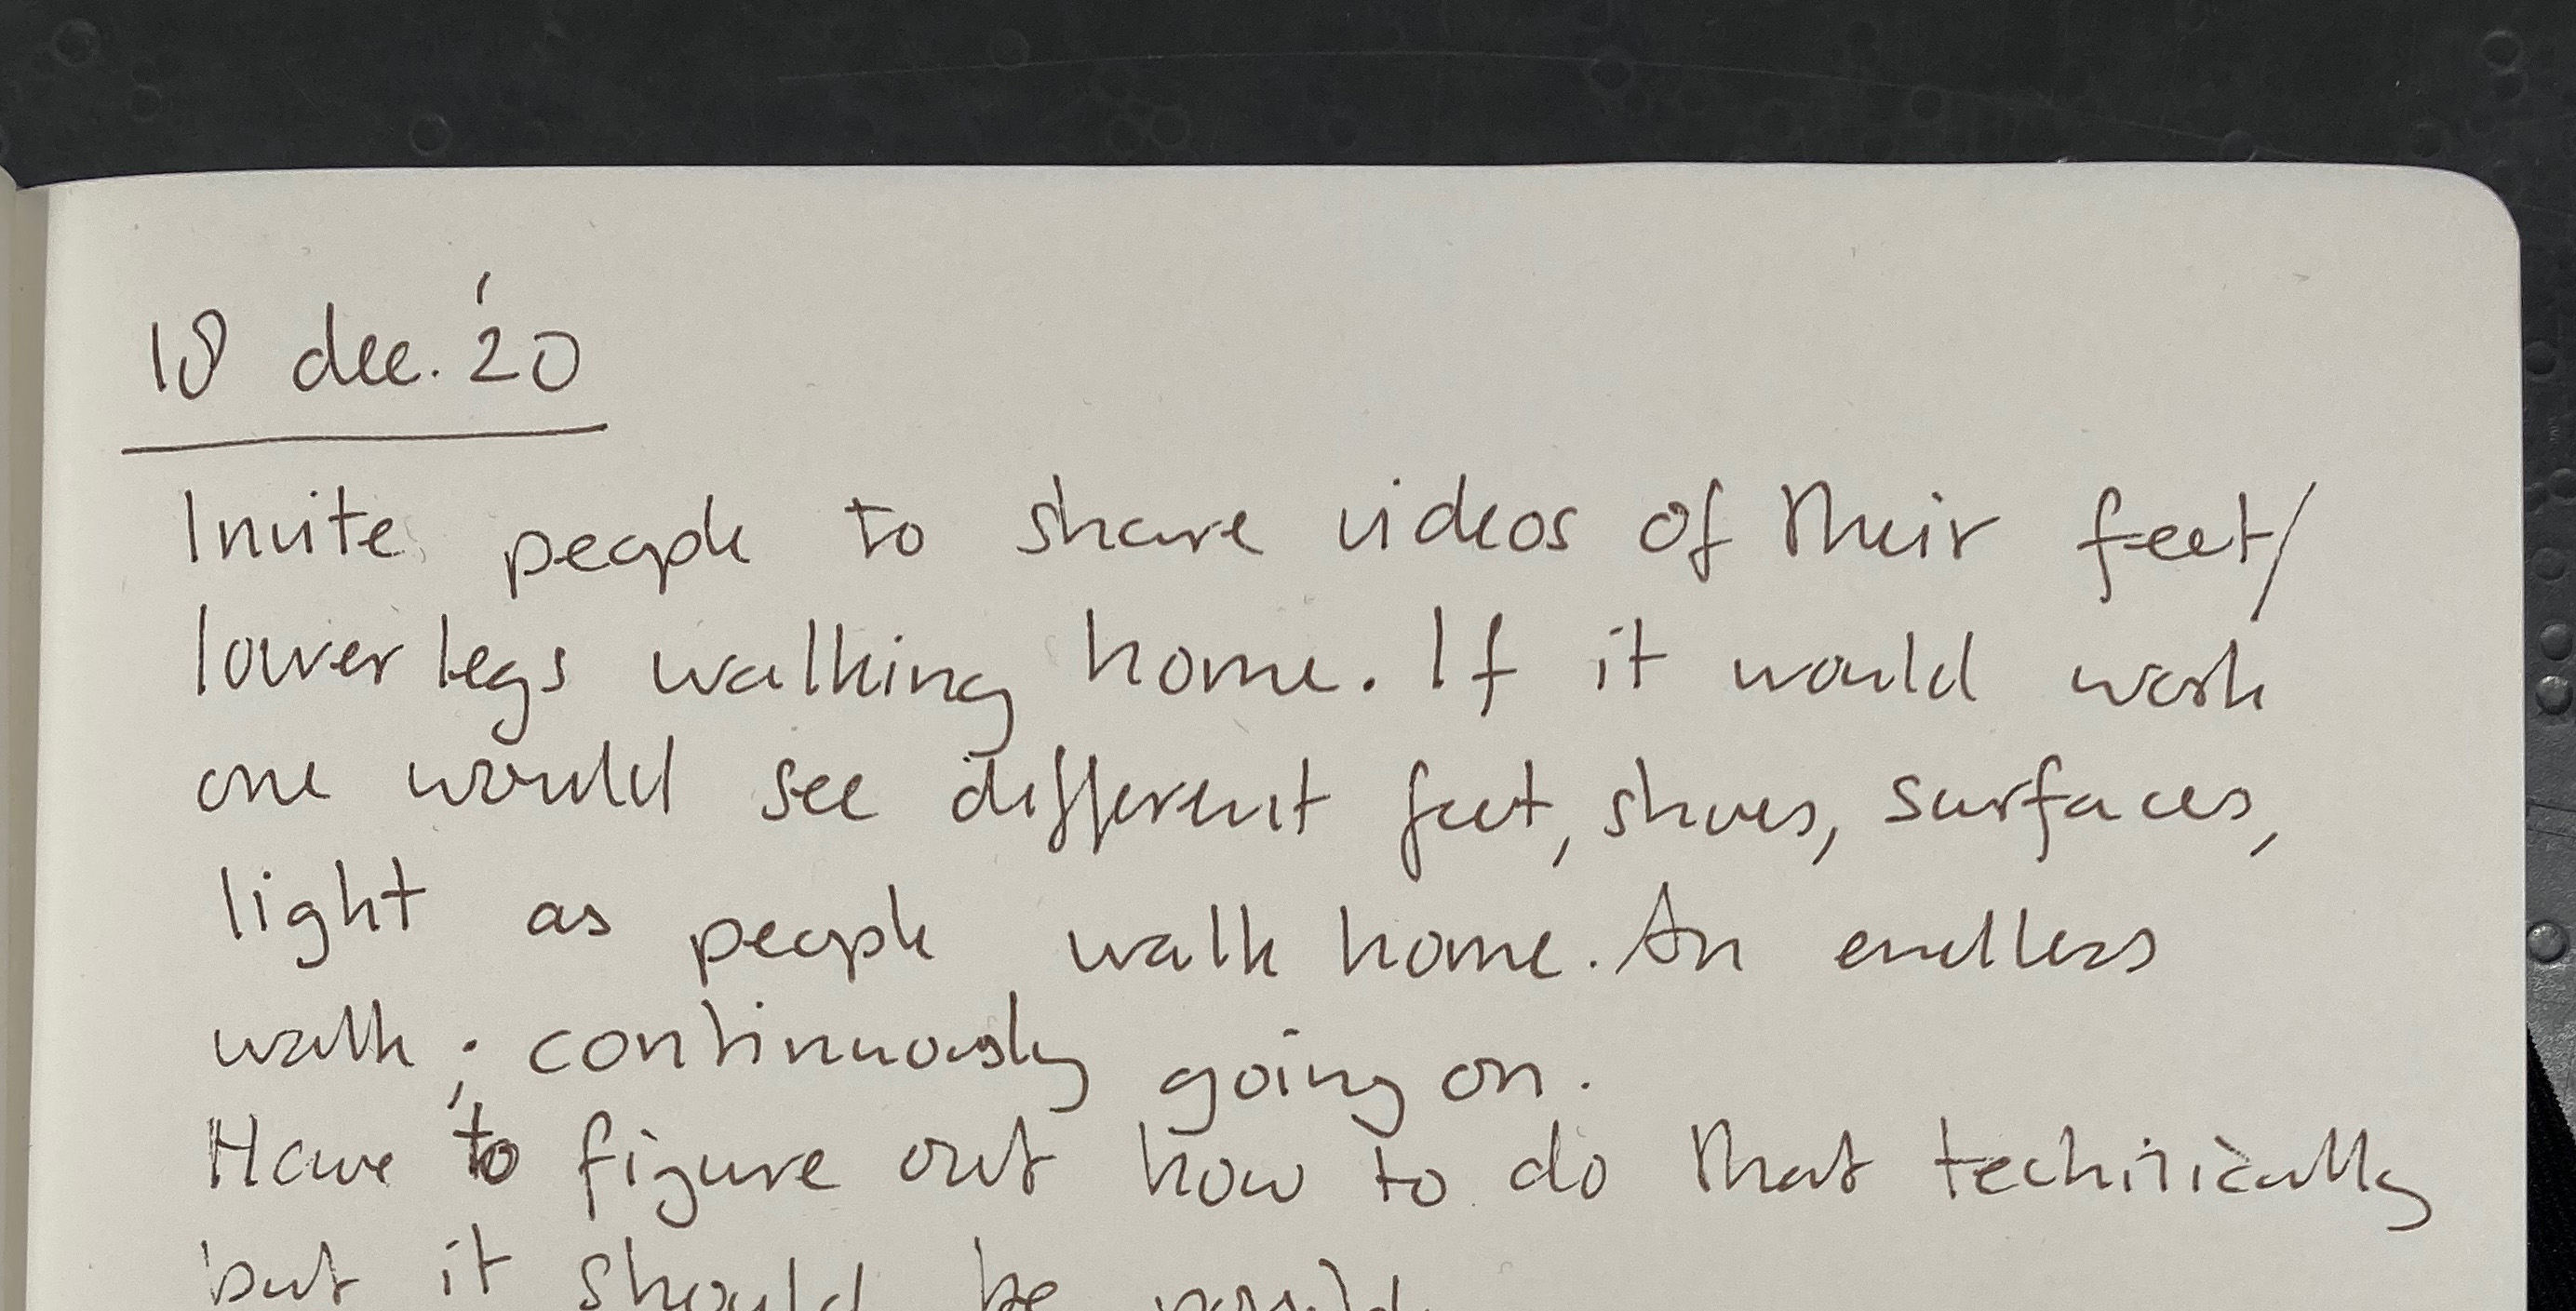 18 dec. '20
Invite people to share videos of their feet/
lower legs walking home. If it would work
one would see different feet, shoes, surfaces,
light as people walk home. An endless
walk; continuously going on.
Have to figure out how to do that technically
but it should be possible